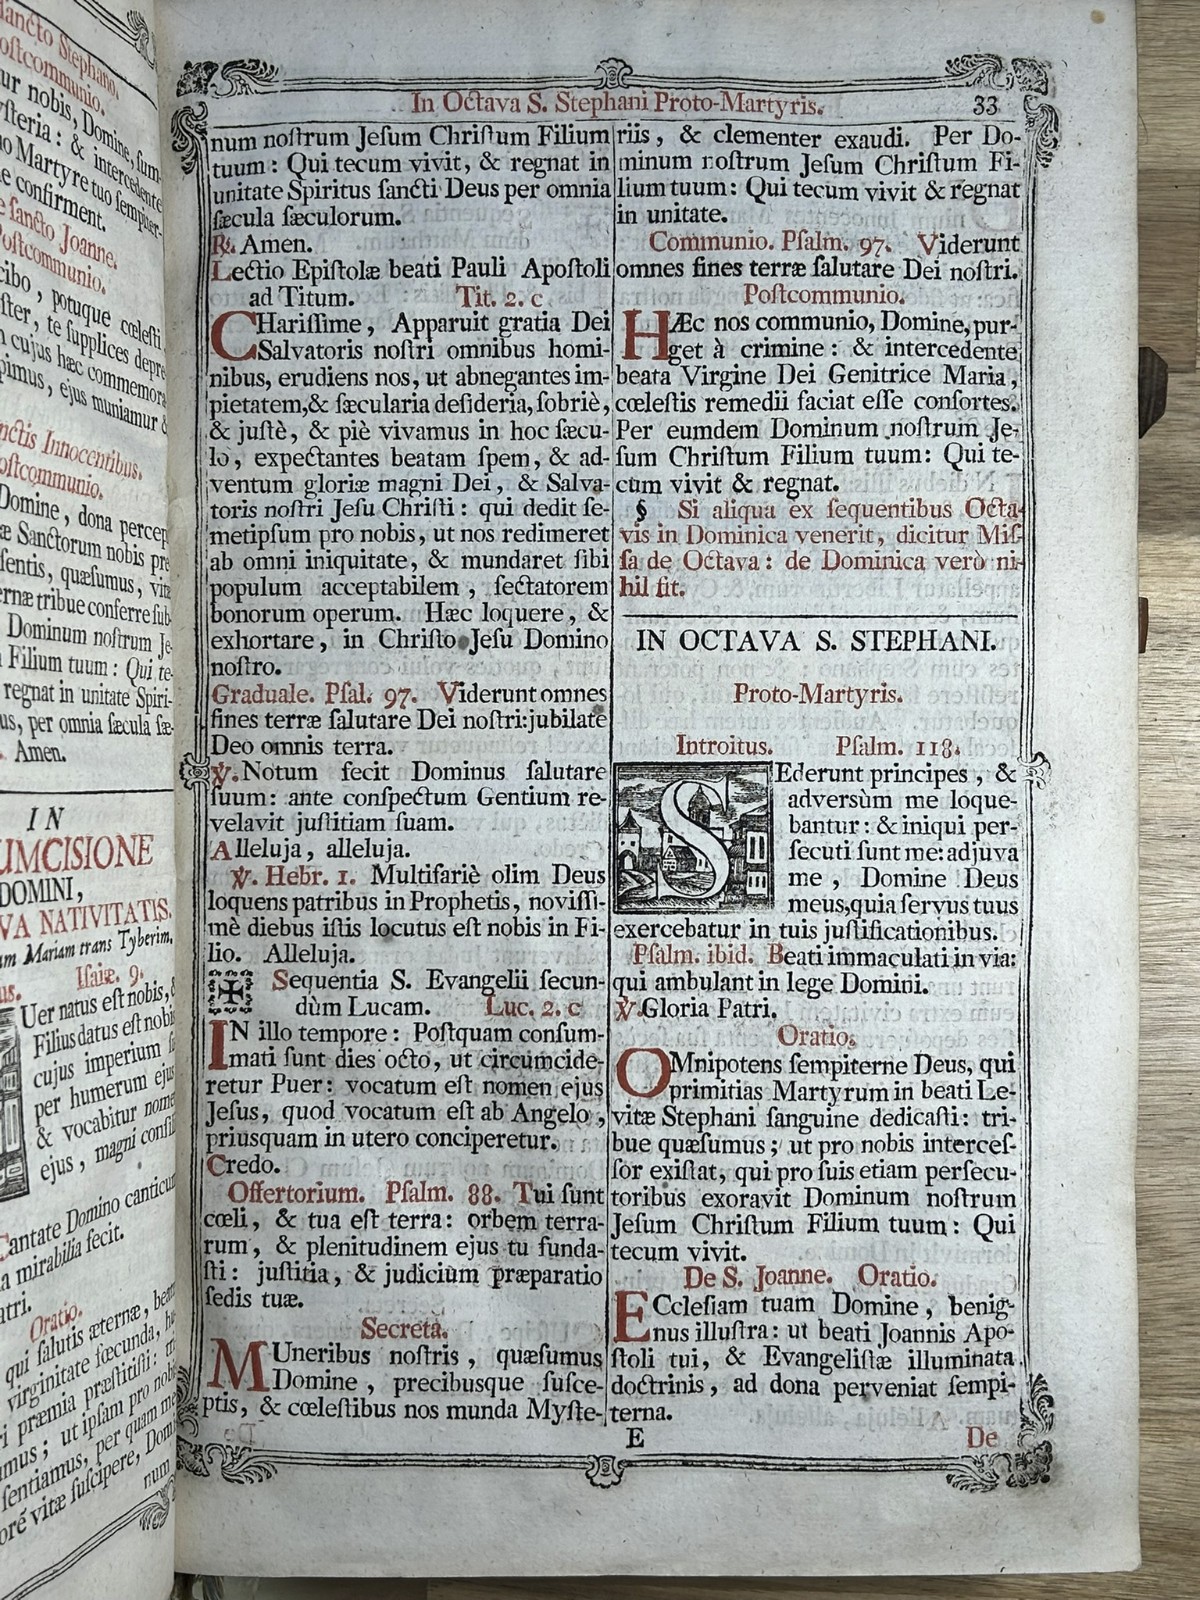 sancto Stephano.
Postcommunio.
ur nobis, Domine, sum-
ysteria: & intercedente
o Martyre tuo sempiter-
e confirment.
e sancto Joanne.
Postcommunio.
cibo, potuque cœlesti
ster, te supplices depre
n cujus hæc commemora
pimus, ejus muniamur &
nctis Innocentibus.
ostcommunio.
Domine, dona percep
æ Sanctorum nobis pre
sentis, quæsumus, vitæ
ernæ tribue conferre sub-
Dominum nostrum Je-
Filium tuum: Qui te-
regnat in unitate Spiri-
us, per omnia sæcula sæ-
Amen.
IN
UMCISIONE
DOMINI,
VA NATIVITATIS.
am Mariam trans Tyberim.
us. Isaiæ. 9.
Uer natus est nobis, &
Filius datus est nobis
cujus imperium s
per humerum ejus
& vocabitur nome
ejus, magni consil
Cantate Domino canticum
a mirabilia fecit.
atri.
Oratio.
qui salutis æternæ, beat
virginitate fœcunda, hu
i præmia præstitisti: tri
mus; ut ipsam pro nobi
sentiamus, per quam me
oré vitæ suscipere, Dom
num
In Octava S. Stephani Proto-Martyris. 33
num nostrum Jesum Christum Filium
tuum: Qui tecum vivit, & regnat in
unitate Spiritus sancti Deus per omnia
sæcula sæculorum.
℟. Amen.
Lectio Epistolæ beati Pauli Apostoli
ad Titum. Tit. 2. c
CHarissime, Apparuit gratia Dei
Salvatoris nostri omnibus homi-
nibus, erudiens nos, ut abnegantes im-
pietatem, & sæcularia desideria, sobriè,
& justè, & piè vivamus in hoc sæcu-
lo, expectantes beatam spem, & ad-
ventum gloriæ magni Dei, & Salva-
toris nostri Jesu Christi: qui dedit se-
metipsum pro nobis, ut nos redimeret
ab omni iniquitate, & mundaret sibi
populum acceptabilem, sectatorem
bonorum operum. Hæc loquere, &
exhortare, in Christo Jesu Domino
nostro.
Graduale. Psal. 97. Viderunt omnes
fines terræ salutare Dei nostri: jubilate
Deo omnis terra.
℣. Notum fecit Dominus salutare
suum: ante conspectum Gentium re-
velavit justitiam suam.
Alleluja, alleluja.
℣. Hebr. 1. Multifariè olim Deus
loquens patribus in Prophetis, novissi-
mè diebus istis locutus est nobis in Fi-
lio. Alleluja.
✠ Sequentia S. Evangelii secun-
dùm Lucam. Luc. 2. c
IN illo tempore: Postquam consum-
mati sunt dies octo, ut circumcide-
retur Puer: vocatum est nomen ejus
Jesus, quod vocatum est ab Angelo,
priusquam in utero conciperetur.
Credo.
Offertorium. Psalm. 88. Tui sunt
cœli, & tua est terra: orbem terra-
rum, & plenitudinem ejus tu funda-
sti: justitia, & judicium præparatio
sedis tuæ.
Secreta.
MUneribus nostris, quæsumus
Domine, precibusque susce-
ptis, & cœlestibus nos munda Myste-
riis, & clementer exaudi. Per Do-
minum nostrum Jesum Christum Fi-
lium tuum: Qui tecum vivit & regnat
in unitate.
Communio. Psalm. 97. Viderunt
omnes fines terræ salutare Dei nostri.
Postcommunio.
HÆc nos communio, Domine, pur-
get à crimine: & intercedente
beata Virgine Dei Genitrice Maria,
cœlestis remedii faciat esse consortes.
Per eumdem Dominum nostrum Je-
sum Christum Filium tuum: Qui te-
cum vivit & regnat.
§ Si aliqua ex sequentibus Octa-
vis in Dominica venerit, dicitur Mis-
sa de Octava: de Dominica verò ni-
hil fit.
IN OCTAVA S. STEPHANI.
Proto-Martyris.
Introitus. Psalm. 118.
SEderunt principes, &
adversùm me loque-
bantur: & iniqui per-
secuti sunt me: adjuva
me, Domine Deus
meus, quia servus tuus
exercebatur in tuis justificationibus.
Psalm. ibid. Beati immaculati in via:
qui ambulant in lege Domini.
℣. Gloria Patri.
Oratio.
OMnipotens sempiterne Deus, qui
primitias Martyrum in beati Le-
vitæ Stephani sanguine dedicasti: tri-
bue quæsumus; ut pro nobis interces-
sor existat, qui pro suis etiam persecu-
toribus exoravit Dominum nostrum
Jesum Christum Filium tuum: Qui
tecum vivit.
De S. Joanne. Oratio.
ECclesiam tuam Domine, benig-
nus illustra: ut beati Joannis Apo-
stoli tui, & Evangelistæ illuminata
doctrinis, ad dona perveniat sempi-
terna.
E De